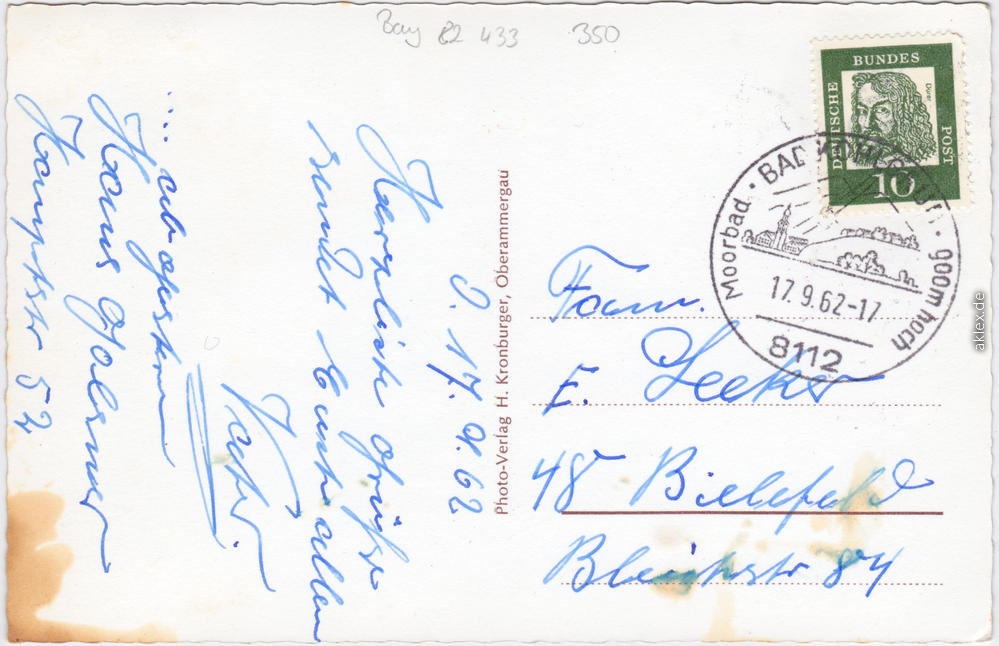 Bay 82 433 350
D. 17. 9. 62
Herzliche Grüße
sendet Euch allen
Vater.
Hauptstr 52
Photo-Verlag H. Kronburger, Oberammergau
DEUTSCHE BUNDES POST
Dürer
10
Moorbad · BAD KOHLGRUB · 900m hoch
17.9.62-17
8112
Fam.
E.
48 Bielefeld
Bleichstr 84
aklex.de